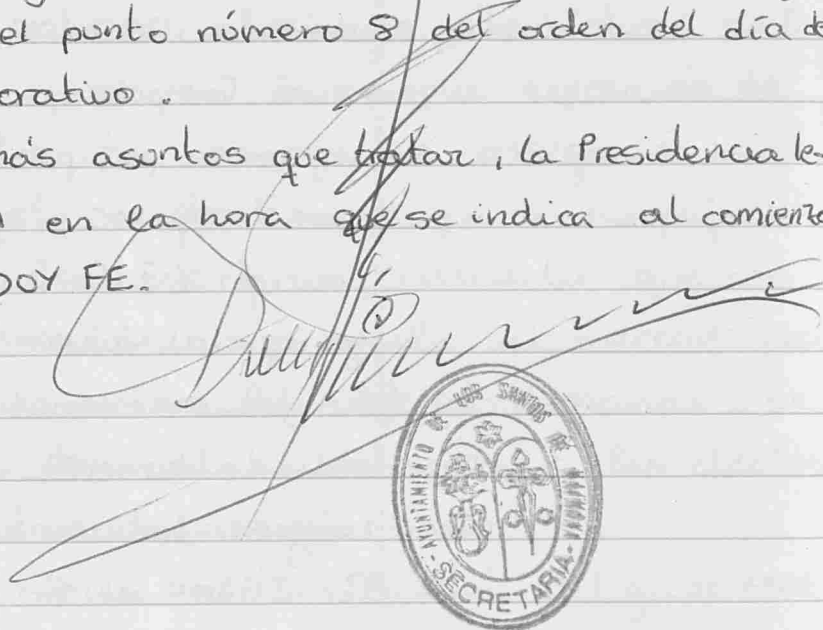 el punto número 8 del orden del día de
orativo.
más asuntos que tratar, la Presidencia le-
en la hora que se indica al comienzo
DOY FE.
AYUNTAMIENTO DE LOS SANTOS DE
-SECRETARIA-